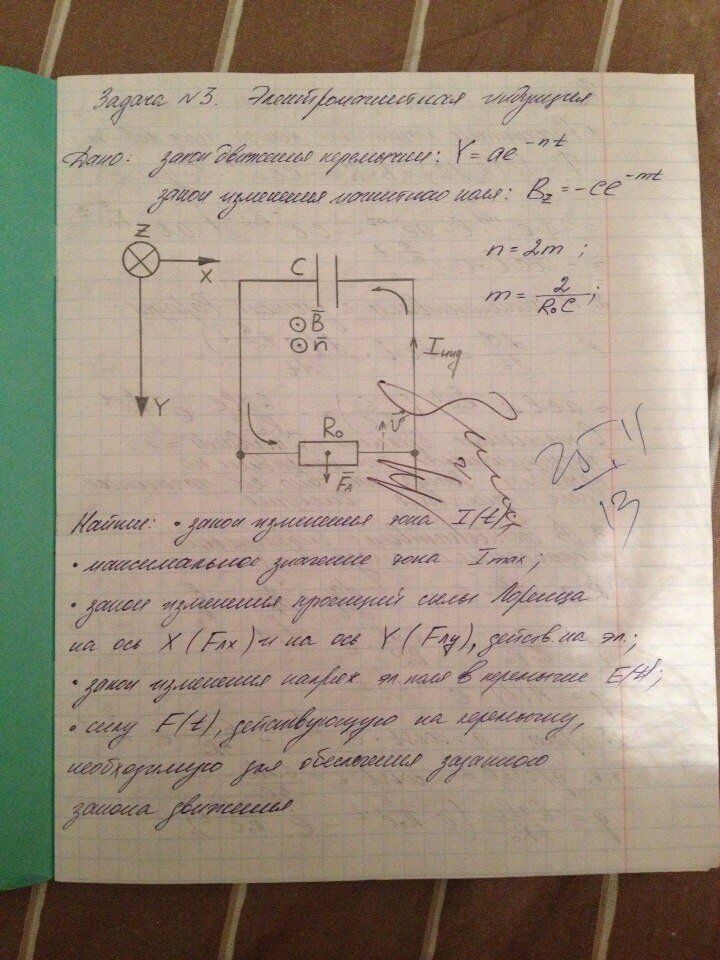 Задача №3. Электромагнитная индукция
Дано: закон движения перемычки: Y = ae^{-nt}
закон изменения магнитного поля: B_z = -ce^{-mt}
n = 2m ;
m = 2/(R₀C) ;
Z
X
Y
C
B̄
n̄
I инд
R₀
v̄
F̄_A
25/11
13
Найти: • закон изменения тока I(t);
• максимальное значение тока Imax;
• закон изменения проекций силы Лоренца
на ось X (Fлx) и на ось Y (Fлy), действ. на эл.;
• закон изменения напряж. эл. поля в перемычке E(t);
• силу F(t), действующую на перемычку,
необходимую для обеспечения заданного
закона движения